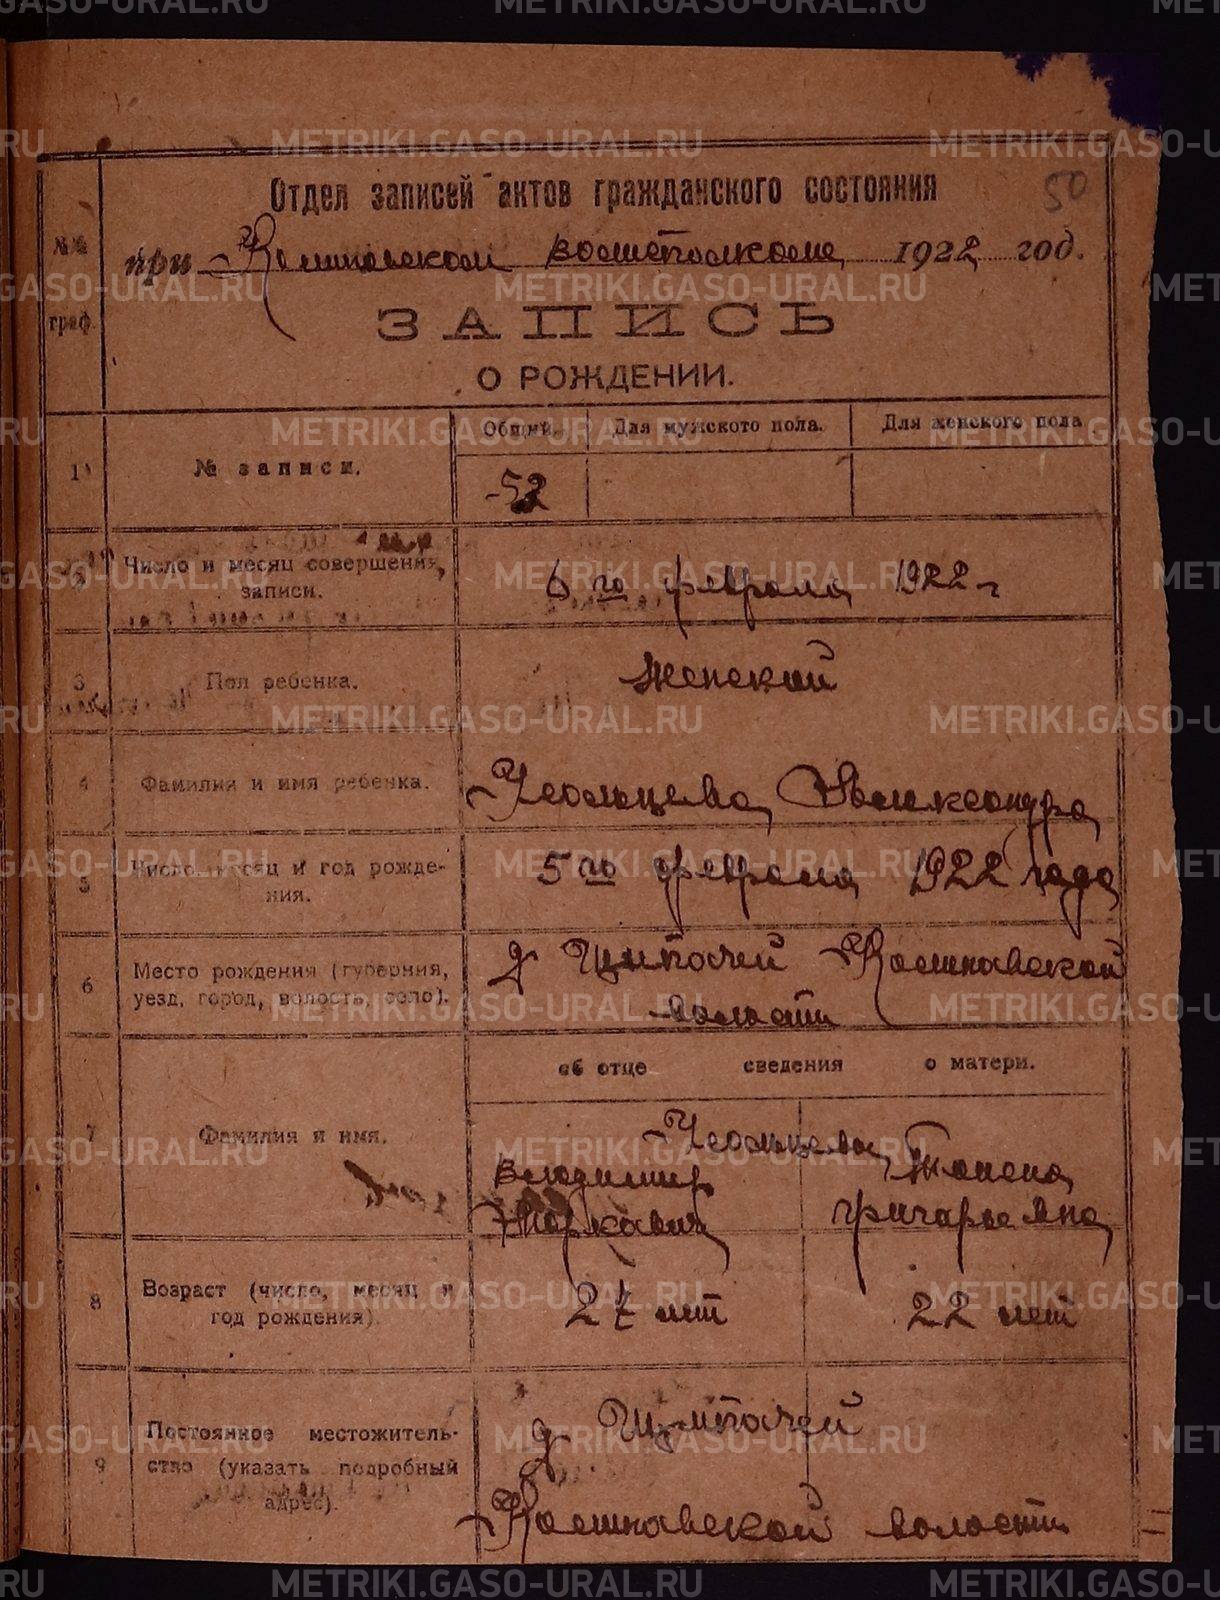 METRIKI.GASO-URAL.RU
50
Отдел записей актов гражданского состояния
№№ граф.
при волисполкоме 1922 год.
ЗАПИСЬ
О РОЖДЕНИИ.
1 № записи.
Общий. Для мужского пола. Для женского пола
52
Число и месяц совершения записи.
6 го февраля 1922 г
3 Пол ребенка.
Женской
4 Фамилия и имя ребенка.
Усольцева Александра
5 Число, месяц и год рождения.
5 го февраля 1922 года
6 Место рождения (губерния,
уезд, город, волость, село).
д
волости
об отце сведения о матери.
7 Фамилия и имя.
Усольцевы
Владимир
Маркавич
8 Возраст (число, месяц и
год рождения)
27 лет 22 лет
9 Постоянное местожитель-
ство (указать подробный
адрес).
д
волости